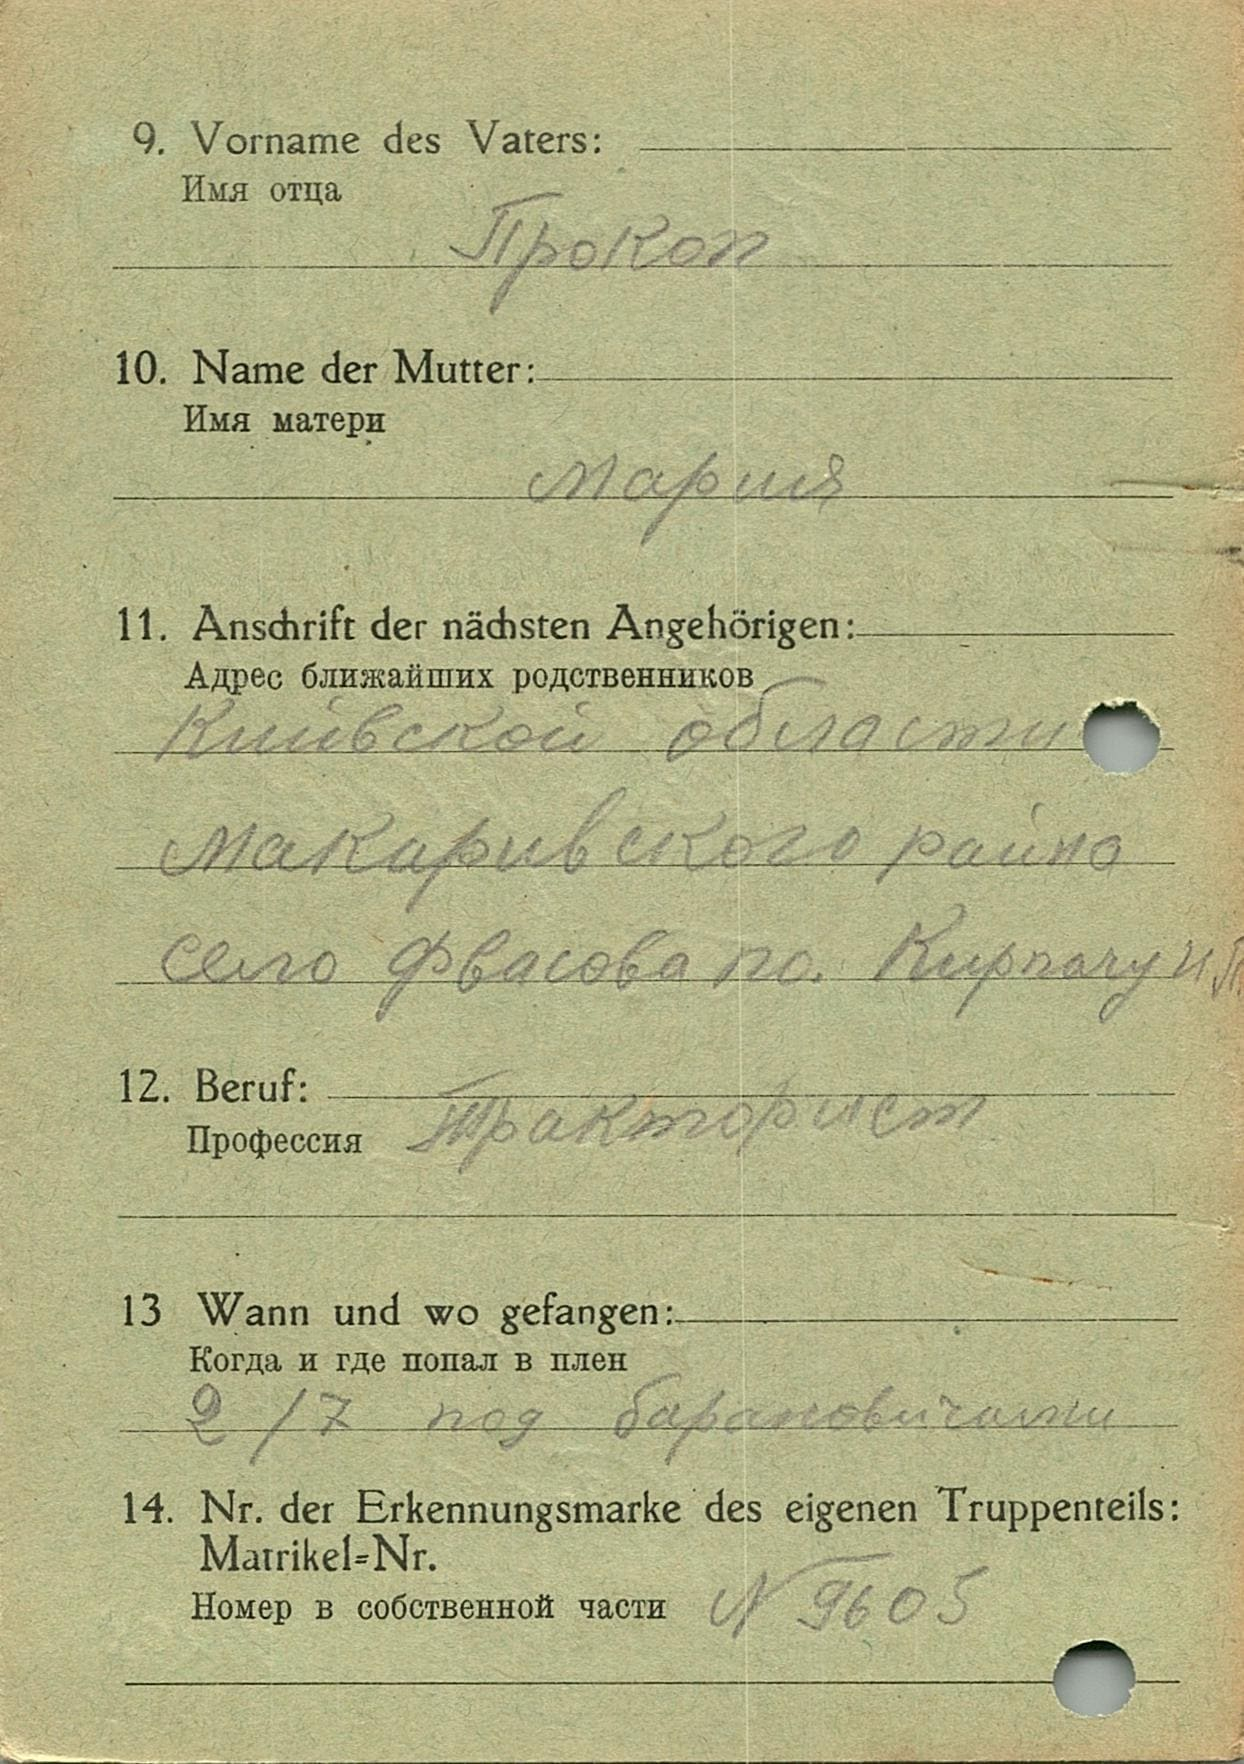 9. Vorname des Vaters:
Имя отца
Прокоп
10. Name der Mutter:
Имя матери
Мария
11. Anschrift der nächsten Angehörigen:
Адрес ближайших родственников
Киивской области
Макаривского района
село Фвасова по. Кирпачу И.П.
12. Beruf:
Профессия Тракторист
13 Wann und wo gefangen:
Когда и где попал в плен
2/7 под барановичами
14. Nr. der Erkennungsmarke des eigenen Truppenteils:
Matrikel=Nr.
Номер в собственной части N 9605